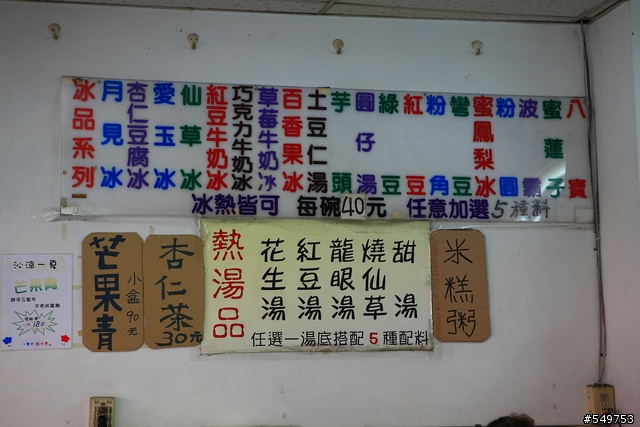 冰品系列
月見冰
杏仁豆腐冰
愛玉冰
仙草冰
紅豆牛奶冰
巧克力牛奶冰
草莓牛奶冰
百香果冰
土豆仁湯
芋頭
圓仔湯
綠豆
紅豆
粉角
彎豆
蜜鳳梨冰
粉圓
波霸
蜜蓮子
八寶
冰熱皆可 每碗40元 任意加選5種料
沁涼一夏
芒果青
芒果青
小盒90元
杏仁茶
30元
熱湯品
花生湯
紅豆湯
龍眼湯
燒仙草
甜湯
任選一湯底搭配5種配料
米糕粥
#549753